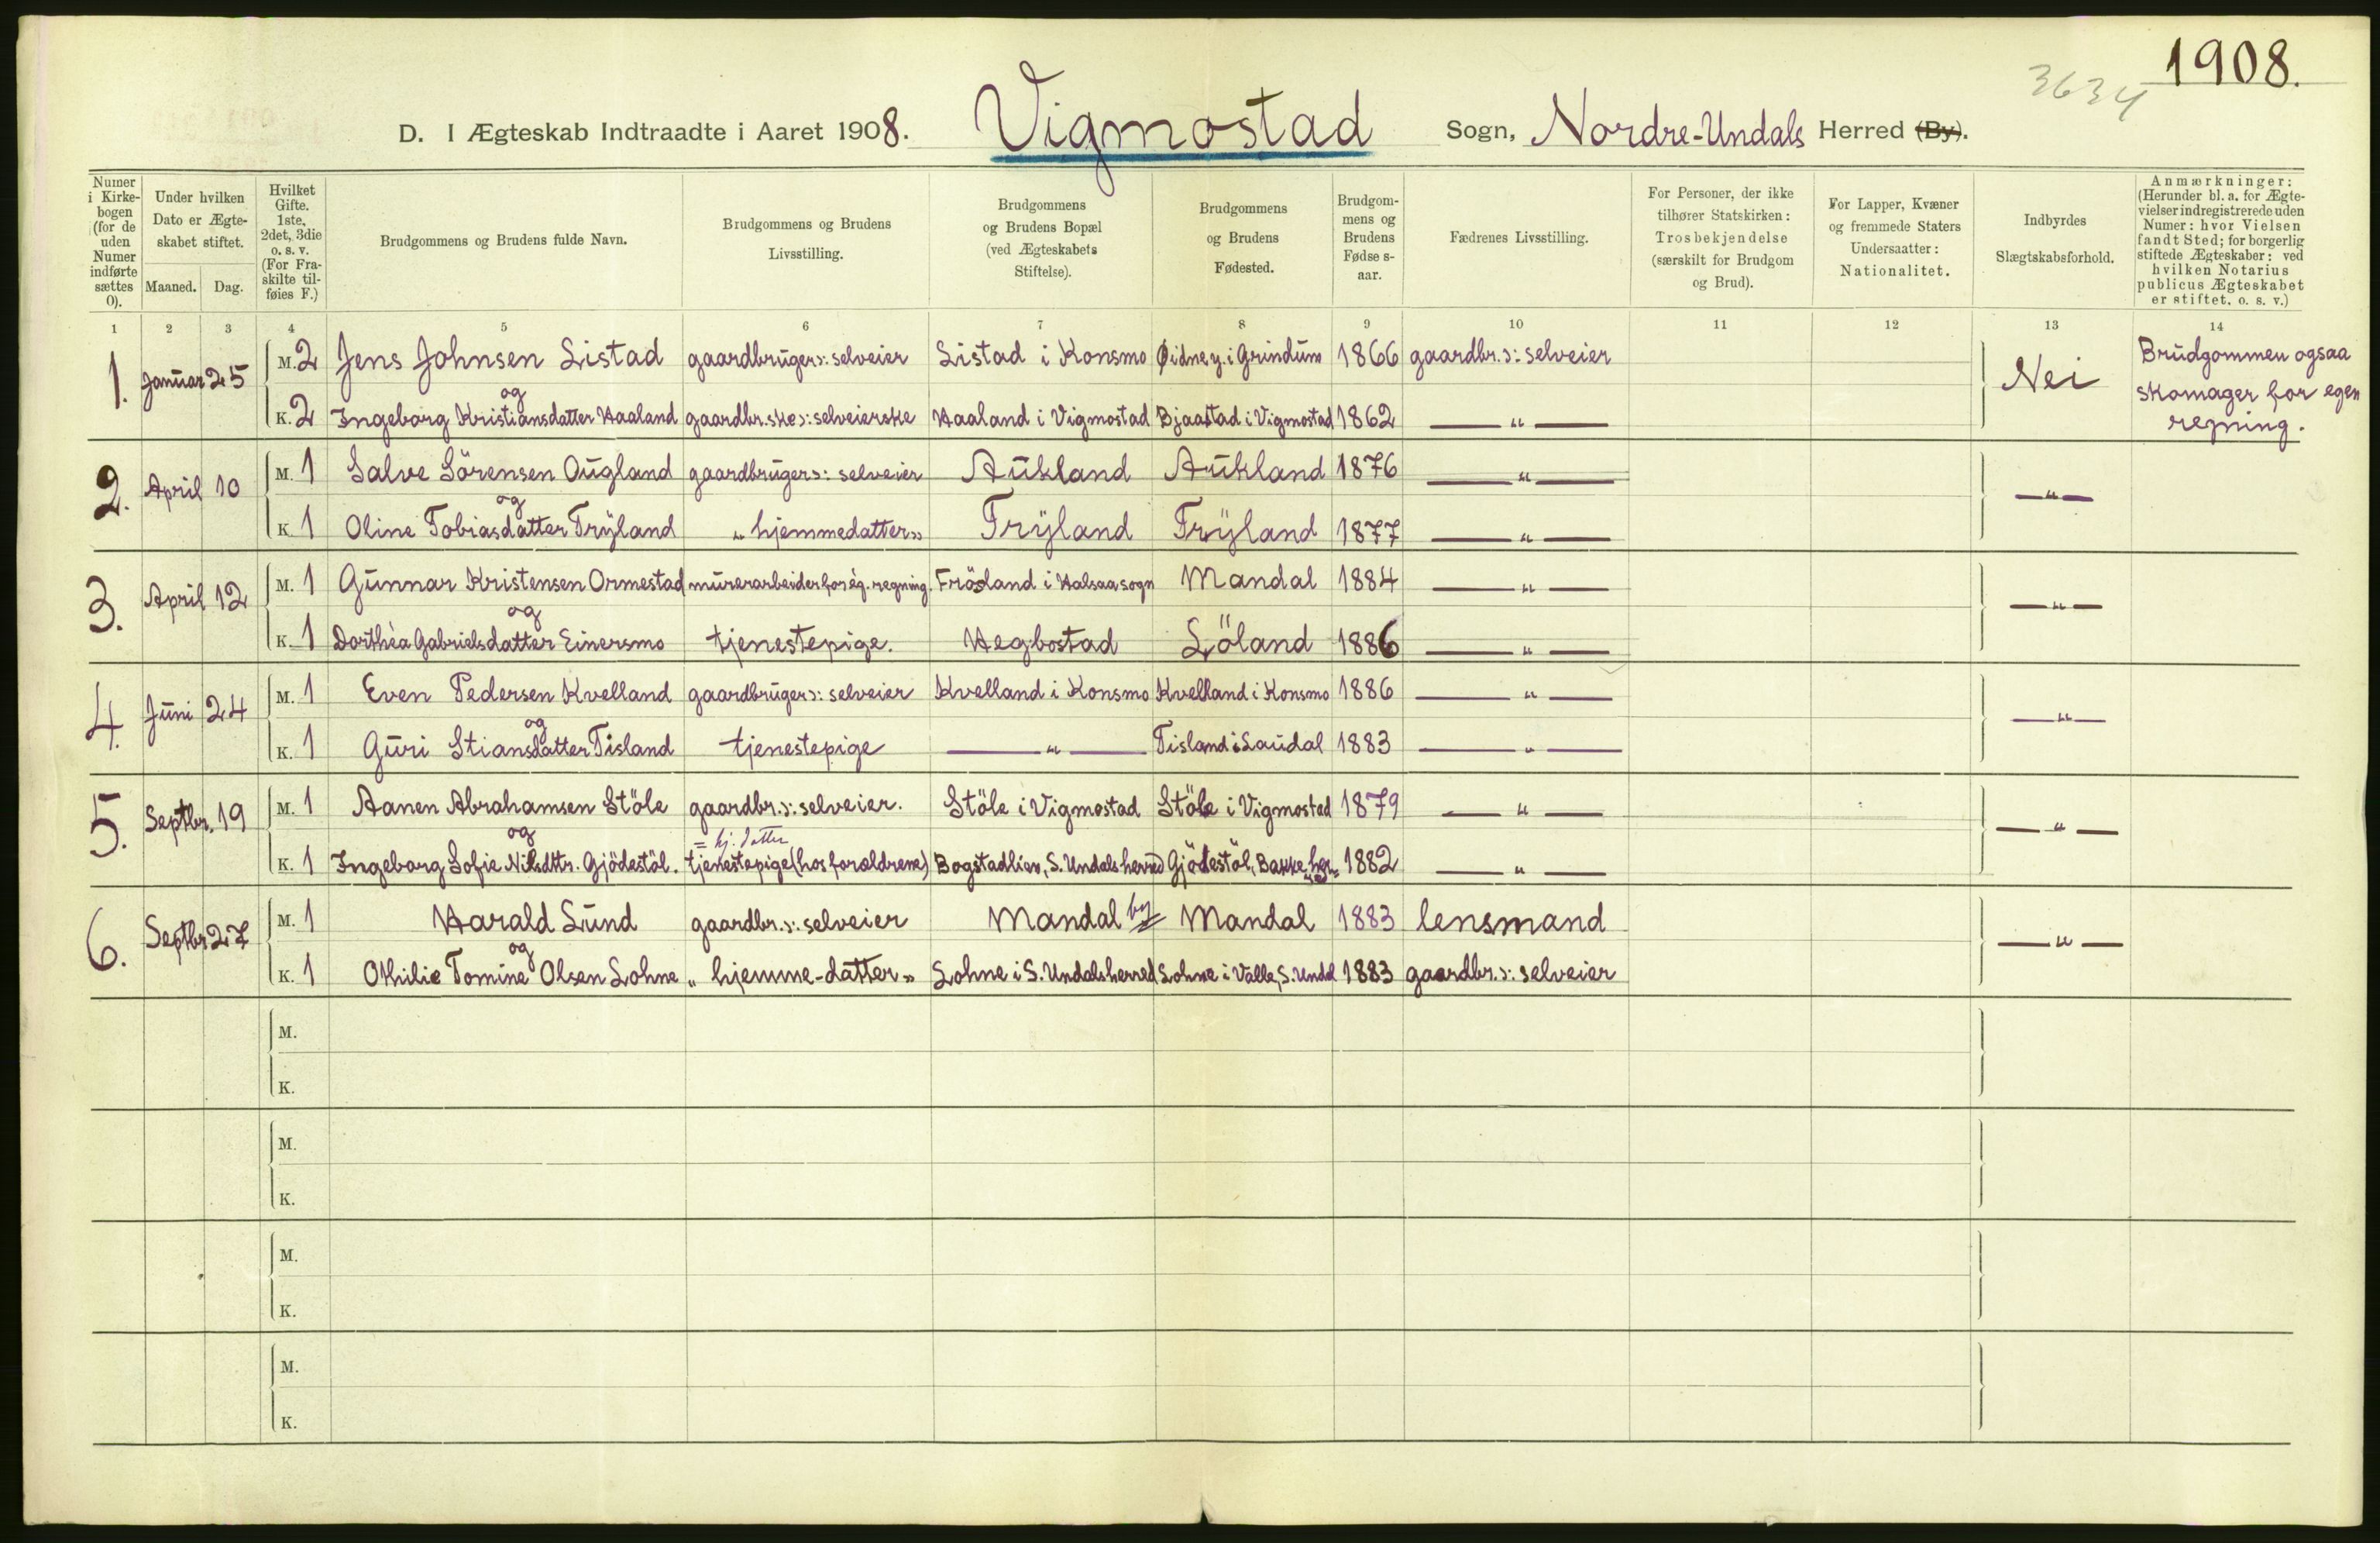 1908.
3634
D. I Ægteskab Indtraadte i Aaret 1908. Vigmostad Sogn, Nordre-Undals Herred (By).
Numer i Kirke-bogen (for de uden Numer indførte sættes 0).
Under hvilken Dato er Ægte-skabet stiftet.
Maaned. Dag.
Hvilket Gifte. 1ste, 2det, 3die o. s. v. (For Fra-skilte til-føies F.)
Brudgommens og Brudens fulde Navn.
Brudgommens og Brudens Livsstilling.
Brudgommens og Brudens Bopæl (ved Ægteskabets Stiftelse).
Brudgommens og Brudens Fødested.
Brudgom-mens og Brudens Fødse s-aar.
Fædrenes Livsstilling.
For Personer, der ikke tilhører Statskirken: Trosbekjendelse (særskilt for Brudgom og Brud).
For Lapper, Kvæner og fremmede Staters Undersaatter: Nationalitet.
Indbyrdes Slægtskabsforhold.
Anmærkninger: (Herunder bl. a. for Ægte-vielser indregistrerede uden Numer: hvor Vielsen fandt Sted; for borgerlig stiftede Ægteskaber: ved hvilken Notarius publicus Ægteskabet er stiftet. o. s. v.)
1 2 3 4 5 6 7 8 9 10 11 12 13 14
1. Januar 25 M. 2 Jens Johnsen Listad gaardbruger ɔ: selveier Listad i Konsmo Øidne y. i Grindum 1866 gaardbr. ɔ: selveier Nei Brudgommen ogsaa
skomager for egen
regning.
og
K. 2 Ingeborg Kristiansdatter Haaland gaardbr.ske ɔ: selveierske Haaland i Vigmostad Bjaastad i Vigmostad 1862 — " —
2. April 10 M. 1 Salve Sörensen Ougland gaardbruger ɔ: selveier Aukland Aukland 1876 — " — — " —
og
K. 1 Oline Tobiasdatter Tryland „hjemmedatter" Tryland Tryland 1877 — " —
3. April 12 M. 1 Gunnar Kristensen Ormestad murerarbeider for eg. regning. Frösland i Halsaa sogn Mandal 1884 — " — — " —
og
K. 1 Dorthea Gabrielsdatter Einersmo tjenestepige. Hegbostad Löland 1886 — " —
4. Juni 24 M. 1 Even Pedersen Kvelland gaardbruger ɔ: selveier Kvelland i Konsmo Kvelland i Konsmo 1886 — " — — " —
og
K. 1 Guri Stiansdatter Tisland tjenestepige — " — Tisland i Laudal 1883 — " —
5. Septbr. 19 M. 1 Aanen Abrahamsen Stöle gaardbr. ɔ: selveier. Stöle i Vigmostad Stöle i Vigmostad 1879 — " — — " —
og = hj. datter
K. 1 Ingeborg Sofie Nilsdtr. Gjödestöl. tjenestepige (hos forældrene) Bogstadlien, S. Undals herred Gjödestöl, Bakke her. 1882 — " —
6. Septbr 27 M. 1 Harald Lund gaardbr. ɔ: selveier Mandal by Mandal 1883 lensmand — " —
og
K. 1 Othilie Tomine Olsen Lohne „hjemme-datter" Lohne i S. Undals herred Lohne i Valle, S. Undal 1883 gaardbr. ɔ: selveier
M.
K.
M.
K.
M.
K.
M.
K.